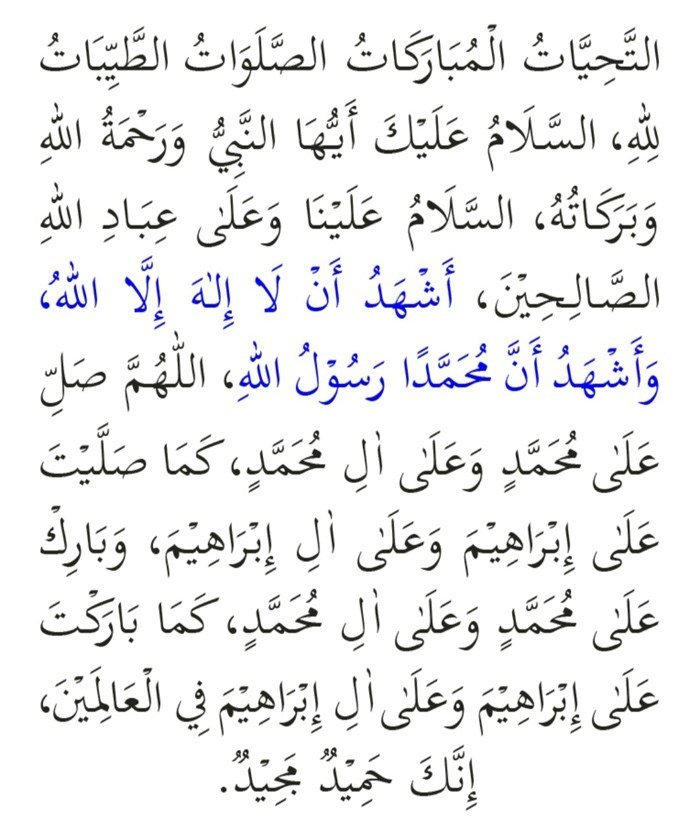 التَّحِيَّاتُ الْمُبَارَكَاتُ الصَّلَوَاتُ الطَّيِّبَاتُ
لِلّٰهِ، السَّلَامُ عَلَيْكَ أَيُّهَا النَّبِيُّ وَرَحْمَةُ اللّٰهِ
وَبَرَكَاتُهُ، السَّلَامُ عَلَيْنَا وَعَلَى عِبَادِ اللّٰهِ
الصَّالِحِيْنَ، أَشْهَدُ أَنْ لَا إِلٰهَ إِلَّا اللّٰهُ،
وَأَشْهَدُ أَنَّ مُحَمَّدًا رَسُوْلُ اللّٰهِ، اللّٰهُمَّ صَلِّ
عَلَىٰ مُحَمَّدٍ وَعَلَىٰ اٰلِ مُحَمَّدٍ، كَمَا صَلَّيْتَ
عَلَىٰ إِبْرَاهِيْمَ وَعَلَىٰ اٰلِ إِبْرَاهِيْمَ، وَبَارِكْ
عَلَىٰ مُحَمَّدٍ وَعَلَىٰ اٰلِ مُحَمَّدٍ، كَمَا بَارَكْتَ
عَلَىٰ إِبْرَاهِيْمَ وَعَلَىٰ اٰلِ إِبْرَاهِيْمَ فِي الْعَالَمِيْنَ،
إِنَّكَ حَمِيْدٌ مَجِيْدٌ.